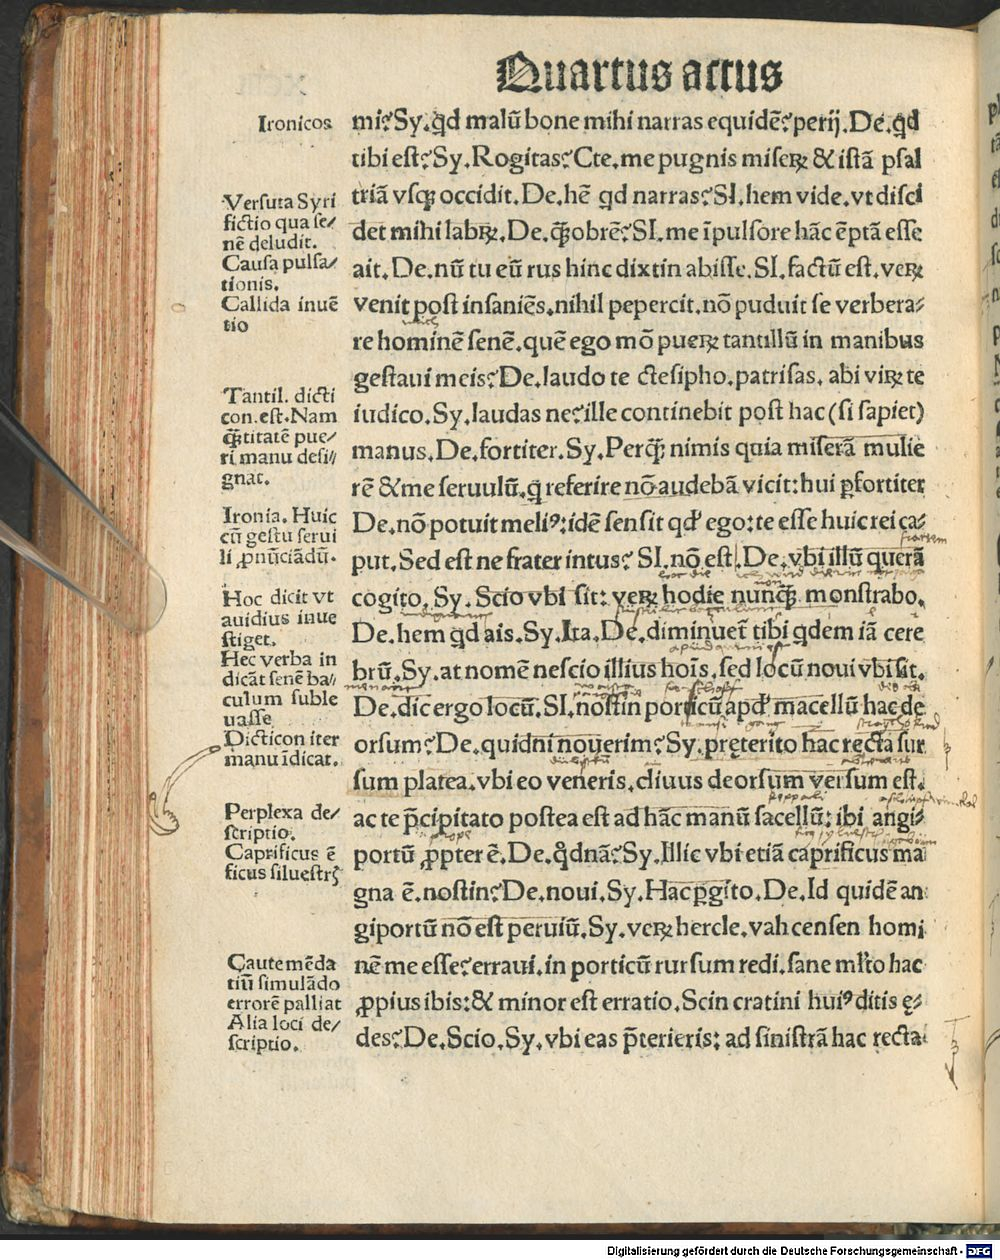 Quartus actus
Ironicos
mi? Sy. qd malū bone mihi narras equidē? perij. De. qd
tibi est? Sy. Rogitas? Cte. me pugnis miseꝝ & istā psal
triā vsqꝫ occidit. De. hē qd narras? SI. hem vide. vt disci
det mihi labꝝ. De. q̄ꝫobrē? SI. me īpulsore hāc ēptā esse
ait. De. nū tu eū rus hinc dixtin abisse. SI. factū est. veꝝ
venit post insaniēs. nihil pepercit. nō puduit se verbera⸗
re hominē senē. quē ego mō pueꝝ tantillū in manibus
gestaui meis? De. laudo te ctesipho. patrisas. abi viꝝ te
iudico. Sy. laudas ne? ille continebit post hac (si sapiet)
manus. De. fortiter. Sy. Perq̄ꝫ nimis quia miserā mulie
rē & me seruulū. q̄ referire nō audebā vicit: hui ꝑfortiter
De. nō potuit meliꝰ: idē sensit qd' ego: te esse huic rei ca⸗
put. Sed est ne frater intus? SI. nō est. De. vbi illū querā
cogito. Sy. Scio vbi sit: veꝝ hodie nunq̄ꝫ monstrabo.
De. hem qd ais. Sy. Ita. De. diminuet̄ tibi qdem iā cere
brū. Sy. at nomē nescio illius hoīs. sed locū noui vbi sit.
De. dic ergo locū. SI. nostin porticū apd' macellū hac de
orsum? De. quidni nouerim? Sy. pręterito hac recta sur
sum platea. vbi eo veneris. cliuus deorsum versum est.
ac te p̄cipitato postea est ad hāc manū sacellū: ibi angi⸗
portū ꝓpter ē. De. qͥdnā? Sy. Illic vbi etiā caprificus ma
gna ē. nostin? De. noui. Sy. Hac ꝑgito. De. Id quidē an
giportū nō est peruiū. Sy. veꝝ hercle. vah censen homi
nē me esse? erraui. in porticū rursum redi. sane mlto hac
ꝓpius ibis: & minor est erratio. Scin cratini huiꝰ ditis ę⸗
des? De. Scio. Sy. vbi eas p̄terieris: ad sinistrā hac recta
Versuta Syri
fictio qua se/
nē deludit.
Causa pulsa/
tionis.
Callida inuē
tio
Tantil. dicti
con. est. Nam
q̄ꝫtitatē pue/
ri manu desi//
gnat.
Ironia. Huic
cū gestu serui
li ꝓnūciādū.
Hoc dicit vt
auidius inue
stiget.
Hec verba in
dicāt senē ba/
culum suble
uasse
Dicticon iter
manu īdicat.
Perplexa de/
scriptio.
Caprificus ē
ficus siluestrꝭ
Caute mēda
tiū simulādo
errorē palliat
Alia loci de/
scriptio.
Digitalisierung gefördert durch die Deutsche Forschungsgemeinschaft - DFG